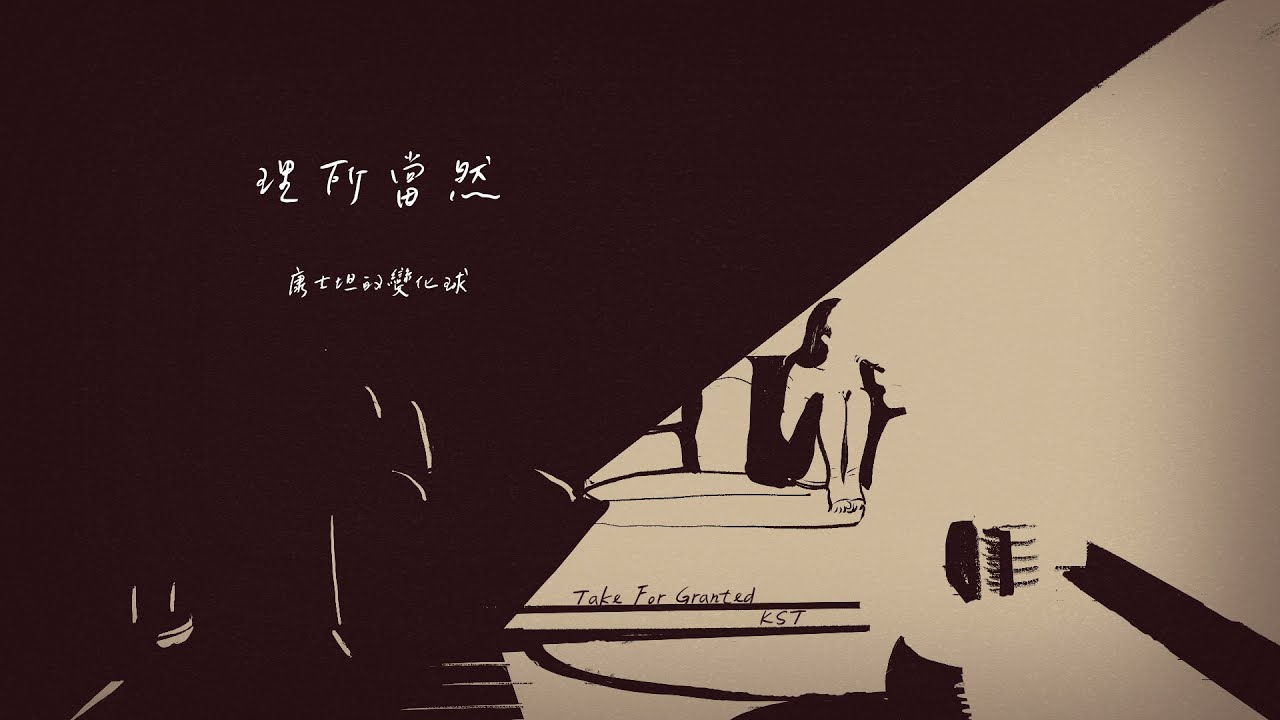 理所當然
康士坦的變化球
Take For Granted
KST